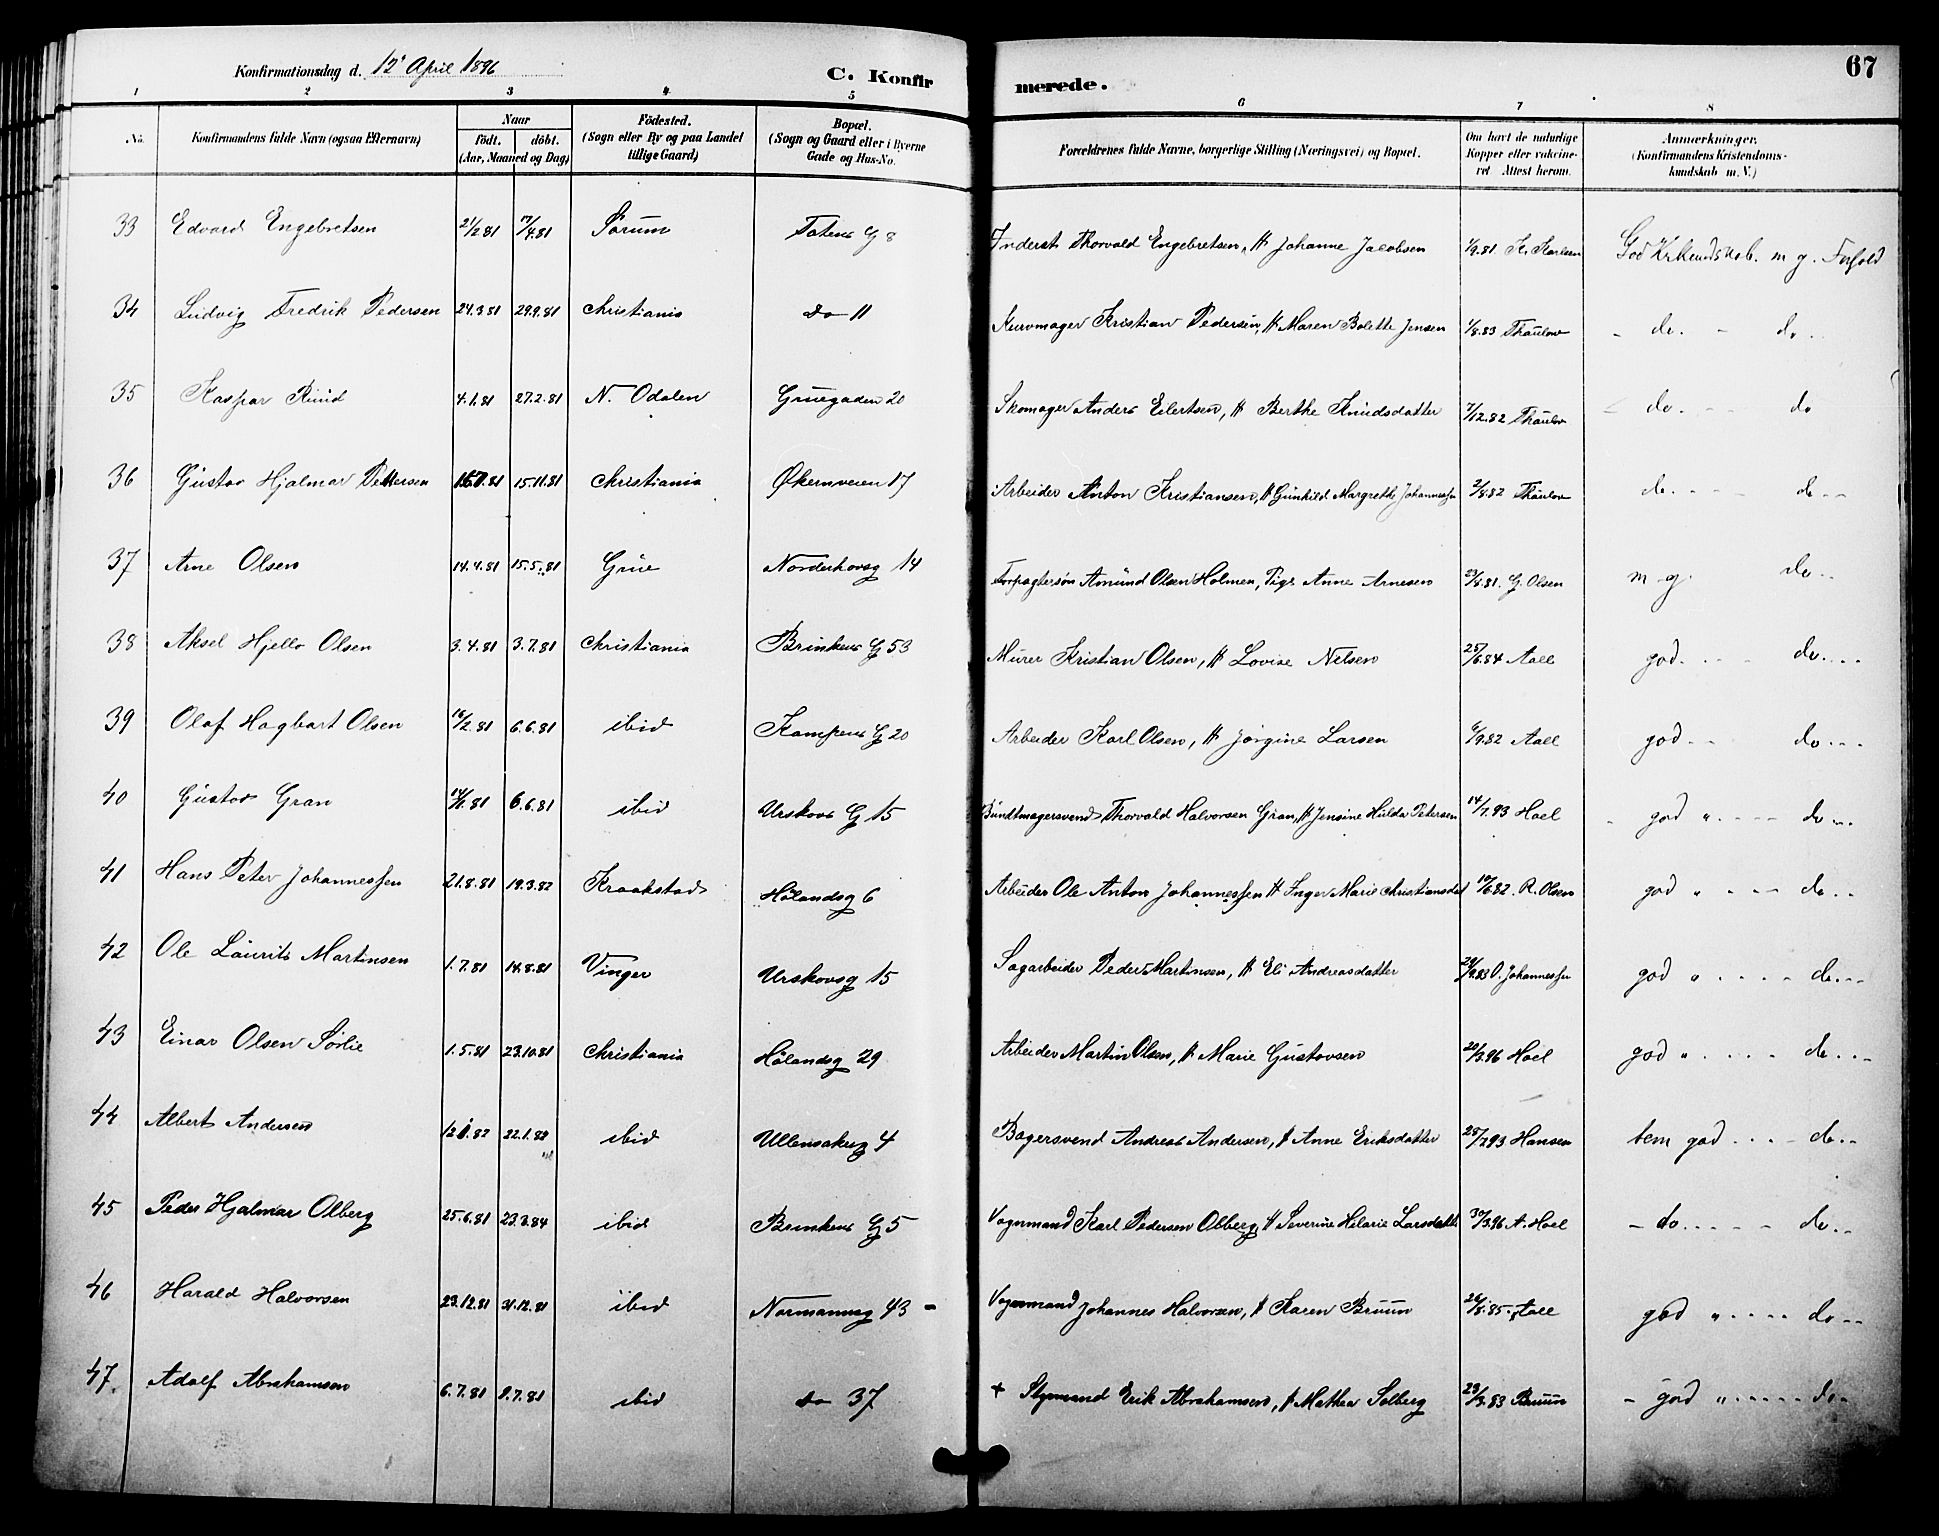 Konfirmationsdag d. 12' April 1896
C. Konfirmerede.
67
1 2 3 4 5 6 7 8
No. Konfirmandens fulde Navn (ogsaa Efternavn) Naar födt. döbt. (Aar, Maaned og Dag) Födested. (Sogn eller By og paa Landet tillige Gaard) Bopæl. (Sogn og Gaard eller i Byerne Gade og Hus-No. Forældrenes fulde Navne, borgerlige Stilling (Næringsvei) og Bopæl. Om havt de naturlige Kopper eller vakcineret. Attest herom. Anmærkninger. (Konfirmandens Kristendomskundskab m. V.)
33 Edvard Engebretsen 21/2.81 17/4.81 Sörum Totens G 8 Inderst Thorvald Engebretsen, H Johanne Jacobsen 1/9.81 K. Karlsen God Kr.kundskab. m g. Forhold
34 Ludvig Fredrik Pedersen 24.3.81 29.9.81 Christiania do 11 Kurvmager Kristian Pedersen, H Maren Bolette Jensen 1/8.83 Thaulow - do. - do.
35 Kaspar Ruud 4.1.81 27.2.81 N. Odalen Gruegaden 20 Skomager Anders Eilertsen, H Berthe Knudsdatter 7/12.82 Thaulow do. - - do
36 Gustav Hjalmar Pettersen 15.11.81 Christiania Økernveien 17 Arbeider Anton Kristiansen, H Gunhild Margrethe Johannessen 2/8.82 Thaulow do. - - - do - -
37 Arne Olsen 14.4.81 15.5.81 Grue Norderhovsg 14 Forpagtersøn Amund Olsen Holmen, Pige Anne Arnesen 23/8.81. G. Olsen m g. do. -
38 Aksel Hjello Olsen 3.4.81 3.7.81 Christiania Brinkens G 53 Murer Kristian Olsen, H Lovise Nelsen 25/6.84 Aall god. - - - do. - - -
39 Olaf Hagbart Olsen 16/2.81 6.6.81 ibid Kampens G 20 Arbeider Karl Olsen, H Jørgine Larsen 6/9.82 Aall god - - do - - -
40 Gustav Gran 6.6.81 ibid Urskovs G 15 Bundtmagersvend Thorvald Halvorsen Gran, H Jensine Hulda Petersen 14/7.93 Hoel - god " - - - - do - - -
41 Hans Peter Johannessen 21.8.81 19.3.82 Kraakstad Hölandsg 6 Arbeider Ole Anton Johannessen H Inger Marie Christiansdat 19/6.82. R. Olsen god " - - - - do - -
42 Ole Laurits Martinsen 1.7.81 14.8.81 Vinger Urskovsg 15 Sagarbeider Peder Martinsen, H Eli Andreasdatter 24/9.83 O. Johannessen god " - - - - do - - -
43 Einar Olsen Sørlie 1.5.81 23.10.81 Christiania Hölandsg 29 Arbeider Martin Olsen, H Marie Gustavsen 20/3.96 Hoel god " - - - - do - - -
44 Albert Andersen 12.1.82 22.1.82 ibid Ullensakerg 4 Bagersvend Andreas Andersen, H Anne Eriksdatter 28/7.93 Hansen tem god - - - - do - -
45 Peder Hjalmar Olberg 25.6.81 23.3.84 ibid Brinkens G 5 Vognmand Karl Pedersen Olberg, H Severine Helarie Larsdatter 30/3.96 A. Hoel - do - - - - - do - -
46 Harald Halvorsen 23.12.81 31.12.81 ibid Normannsg 43 - Vognmand Johannes Halvorsen, H Karen Bruun 26/8.85. Aall god " - - - - do - -
47. Adolf Abrahamsen 6.7.81 9.7.81 ibid do 37 + Styrmand Erik Abrahamsen, H Mathea Solberg 23/3.83 Bruun - god " - - - - - do -